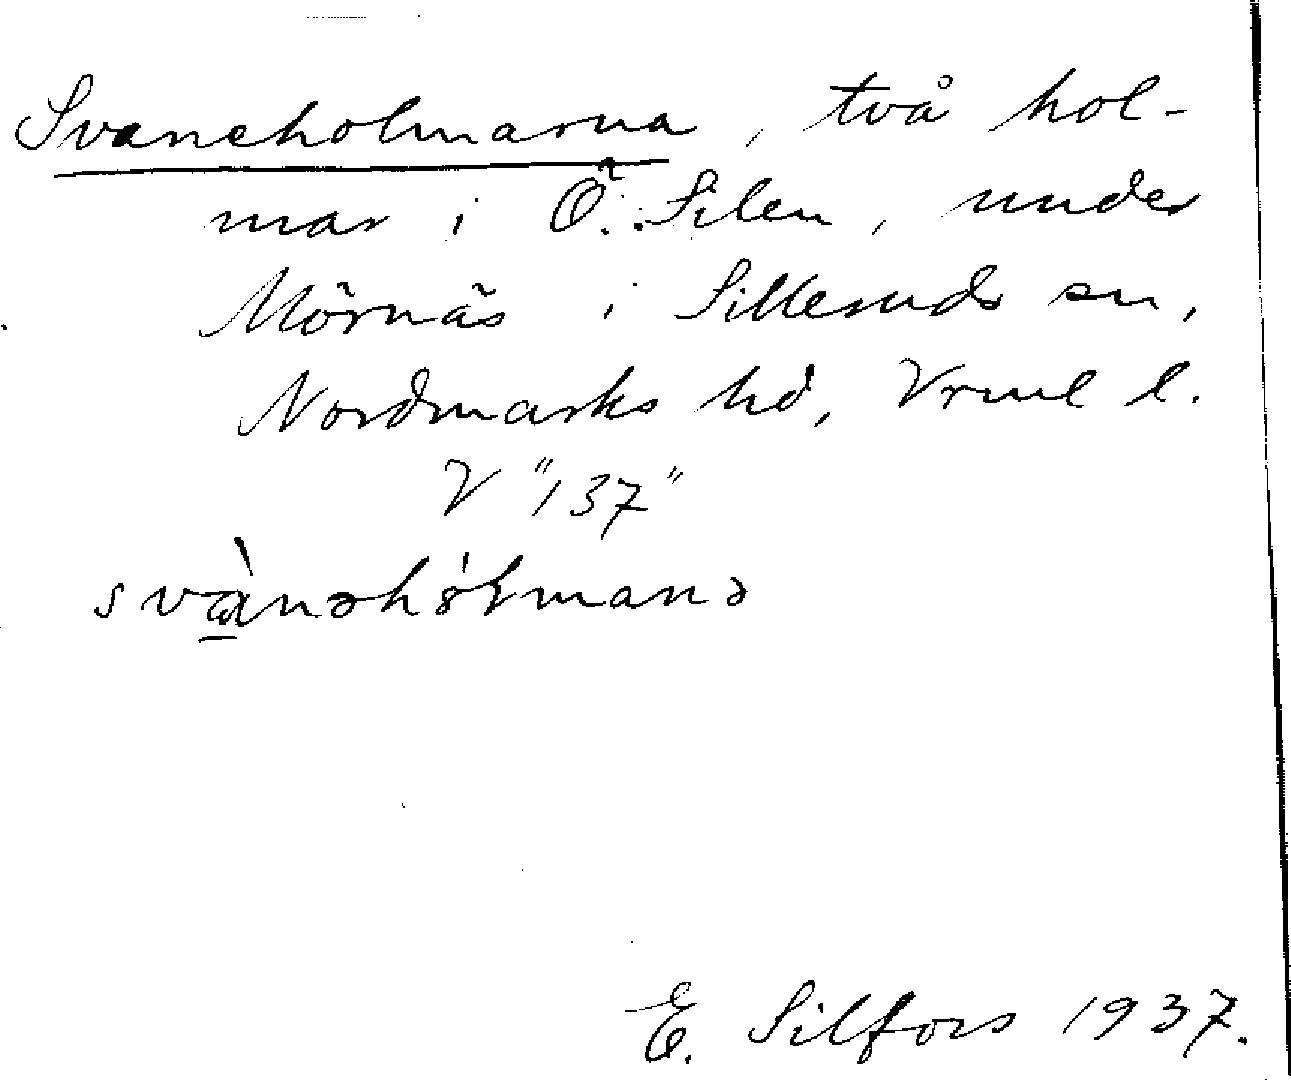 Svaneholmarna, två hol-
mar i Ö. Silen, under
Mörnäs i Silleruds sn,
Nordmarks hd, Vrml l.
V "137"
svànəhólmanə
E. Silfors 1937.